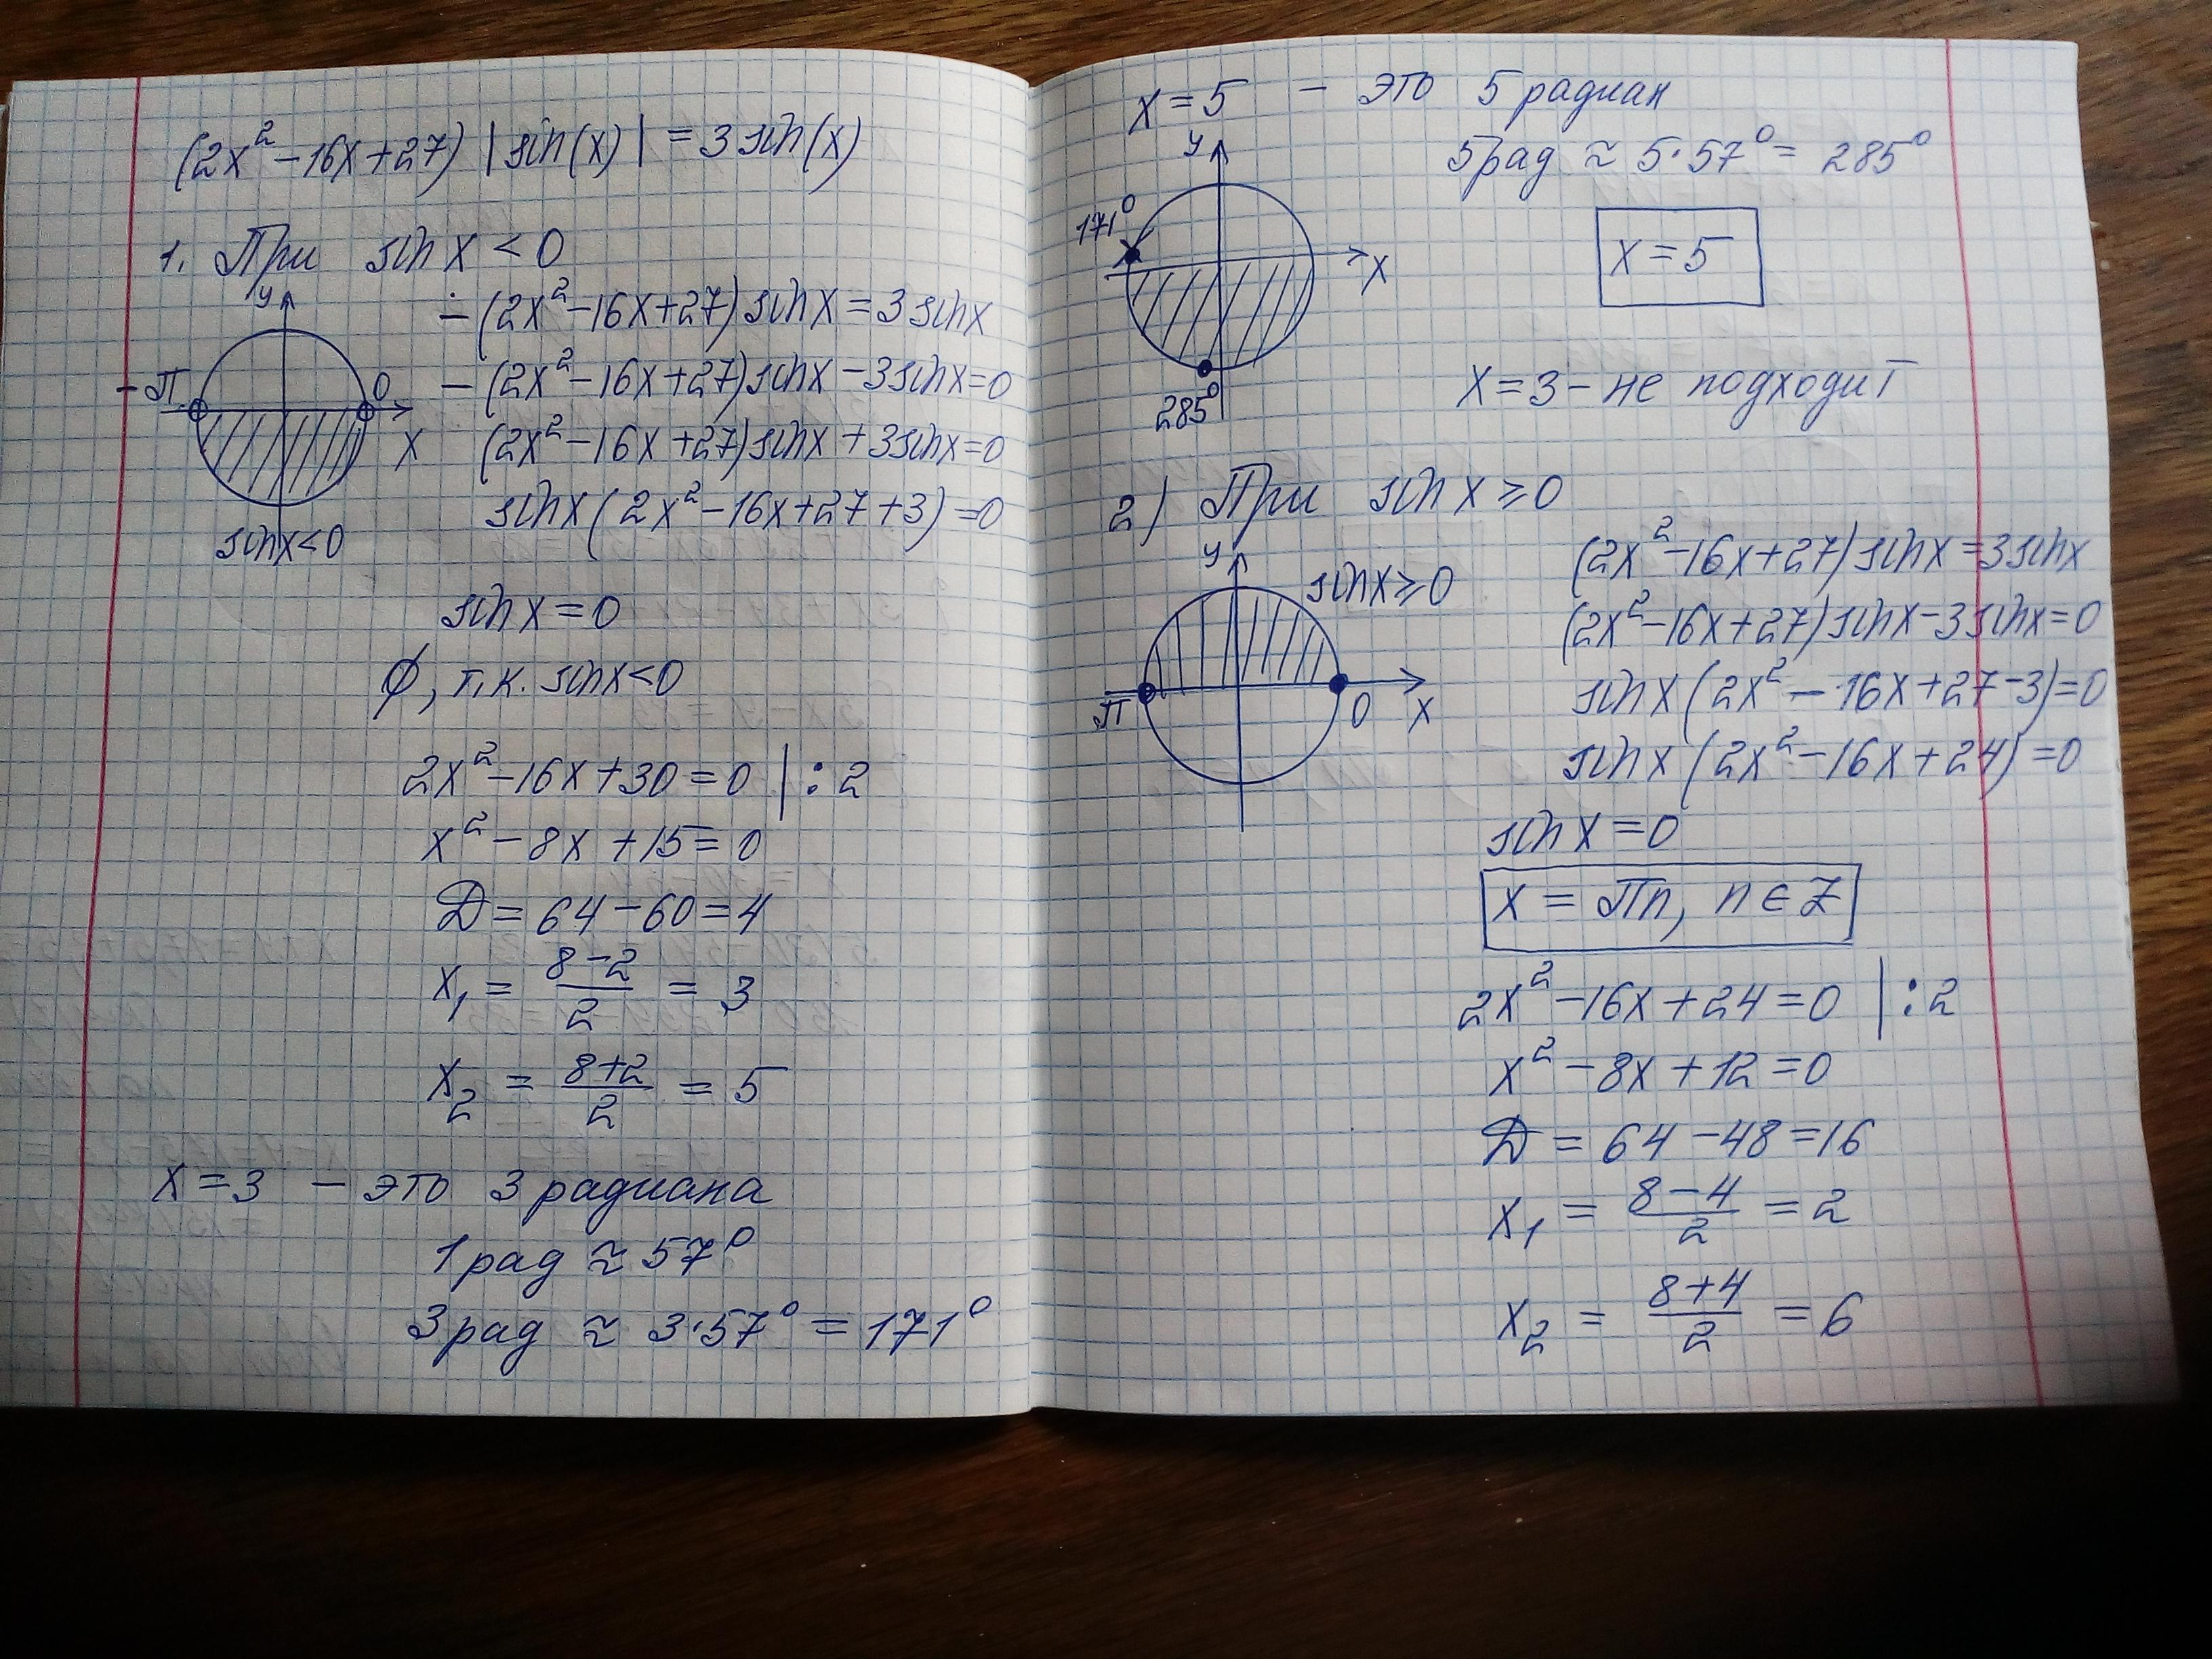 (2x² - 16x + 27) |sin(x)| = 3 sin(x)
1. При sin x < 0
y
- (2x² - 16x + 27) sin x = 3 sin x
-П 0
- (2x² - 16x + 27) sin x - 3 sin x = 0
x
(2x² - 16x + 27) sin x + 3 sin x = 0
sin x (2x² - 16x + 27 + 3) = 0
sin x < 0
sin x = 0
∅, т.к. sin x < 0
2x² - 16x + 30 = 0 | : 2
x² - 8x + 15 = 0
D = 64 - 60 = 4
x₁ = (8 - 2)/2 = 3
x₂ = (8 + 2)/2 = 5
x = 3 - это 3 радиана
1 рад ≈ 57°
3 рад ≈ 3·57° = 171°
x = 5 - это 5 радиан
5 рад ≈ 5·57° = 285°
y
171°
x
285°
x = 5
x = 3 - не подходит
2) При sin x ≥ 0
y
sin x ≥ 0
П 0 x
(2x² - 16x + 27) sin x = 3 sin x
(2x² - 16x + 27) sin x - 3 sin x = 0
sin x (2x² - 16x + 27 - 3) = 0
sin x (2x² - 16x + 24) = 0
sin x = 0
x = Пn, n ∈ Z
2x² - 16x + 24 = 0 | : 2
x² - 8x + 12 = 0
D = 64 - 48 = 16
x₁ = (8 - 4)/2 = 2
x₂ = (8 + 4)/2 = 6